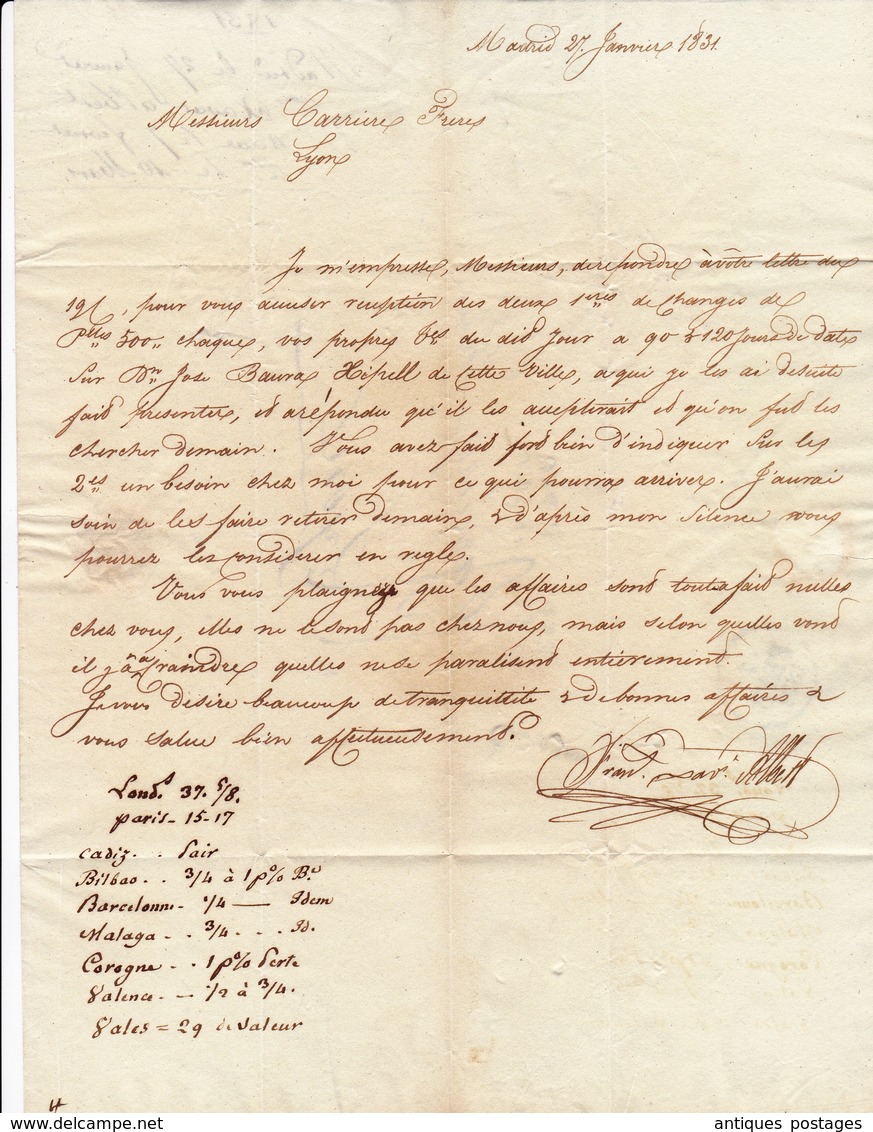 Madrid 27. Janvier 1831.
Messieurs Carriere Freres
Lyon
Je m'empresse, Messieurs, de repondre à vôtre lettre du
19 C, pour vous accuser reception des deux 1eres de changes de
Ptles 500,, chaque, vos propres Ces du did Jour a 90 & 120 Jours de date
Sur Dn. Jose Baura Hipell de Cette Ville, a qui je les ai desuite
faid presenter, id a répondu qu'il les accepterait id qu'on fud les
chercher demain. Vous avez faid ford bien d'indiquer Sur les
2es un besoin chez moi pour ce qui pourra arriver. J'aurai
soin de les faire retirer demain, & d'après mon Silence vous
pourrez les considerer en regle.
Vous vous plaignez que les affaires sond touta faid nulles
chez vous, elles ne le sond pas chez nous, mais selon quelles vond
il y a a Craindre quelles ne se paralisend entièrement.
Je vous desire beaucoup de tranquillité & de bonnes affaires &
vous salue bien affectueusement.
Frano. Xavr. Albert
Londs. 37. 5/8.
paris - 15-17
Cadiz . . Pair
Bilbao . . 3/4 à 1 p% Be
Barcelonne - 1/4 — Idem
Malaga - . 3/4 . . . Id.
Corogne . . 1 p% Perte
Valence . - 1/2 à 3/4.
Vales = 29 de valeur
antiques postages